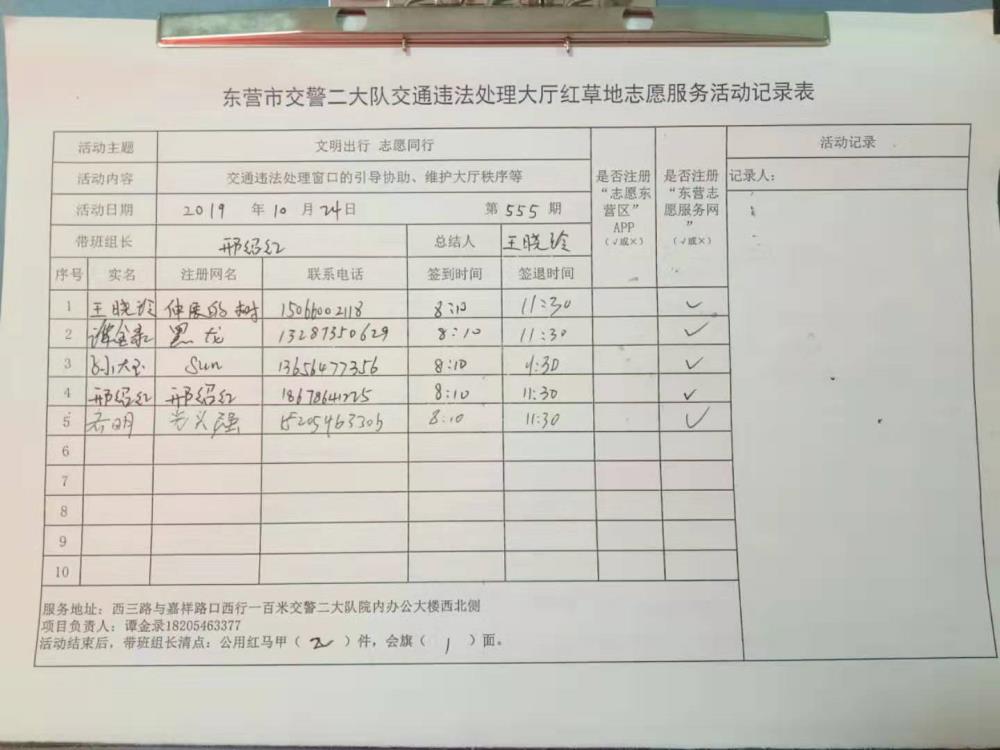 东营市交警二大队交通违法处理大厅红草地志愿服务活动记录表
活动主题 文明出行 志愿同行
活动内容 交通违法处理窗口的引导协助、维护大厅秩序等
活动日期 2019 年 10 月 24日 第 555 期
带班组长 邢绍红 总结人 王晓玲
序号 实名 注册网名 联系电话 签到时间 签退时间
是否注册
“志愿东
营区”
APP
(√或×)
是否注册
“东营志
愿服务网
”
(√或×)
活动记录
记录人:
1 王晓玲 伸展的树 15066002118 8:10 11:30 ✓
2 谭金录 黑龙 13287350629 8:10 11:30 ✓
3 Sun 13656477356 8:10 9:30 ✓
4 邢绍红 邢绍红 18678641225 8:10 11:30 ✓
5 光头强 15205463305 8:10 11:30 ✓
6
7
8
9
10
服务地址:西三路与嘉祥路口西行一百米交警二大队院内办公大楼西北侧
项目负责人:谭金录18205463377
活动结束后,带班组长清点:公用红马甲( 2 )件,会旗( 1 )面。